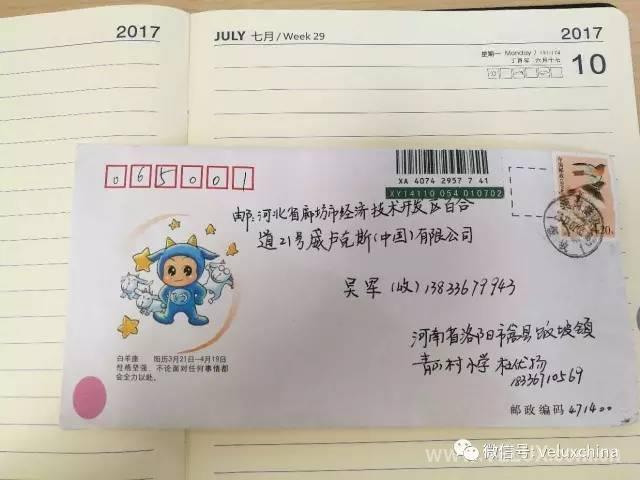 2017
JULY 七月/Week 29
2017
星期一 Monday
10
065001
XA 4074 2957 7 41
XY14110 054 010702
邮:河北省廊坊市经济技术开发区百合
道21号威卢克斯(中国)有限公司
吴军(收) 13833679943
河南省洛阳市嵩县 坡领
小学
18336710569
邮政编码 471400
白羊座 阳历3月21日—4月19日
性格坚强、不论面对任何事情都
会全力以赴。
微信号: Veluxchina